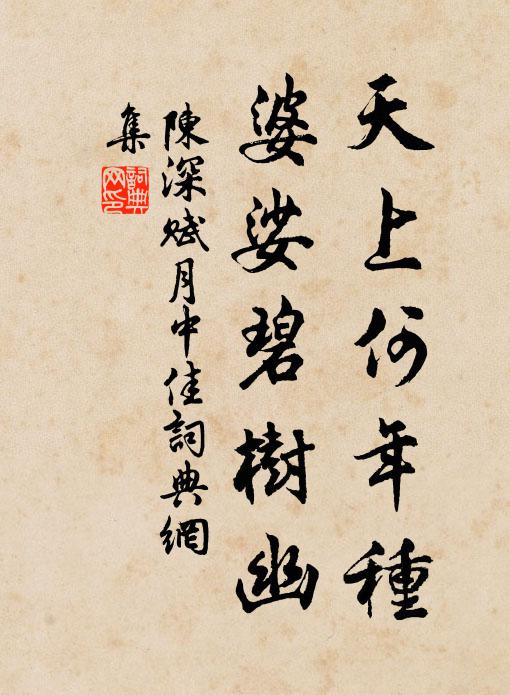 天上何年種
婆娑碧樹幽
陳深賦月中佳詞典網
集
詞典
网印